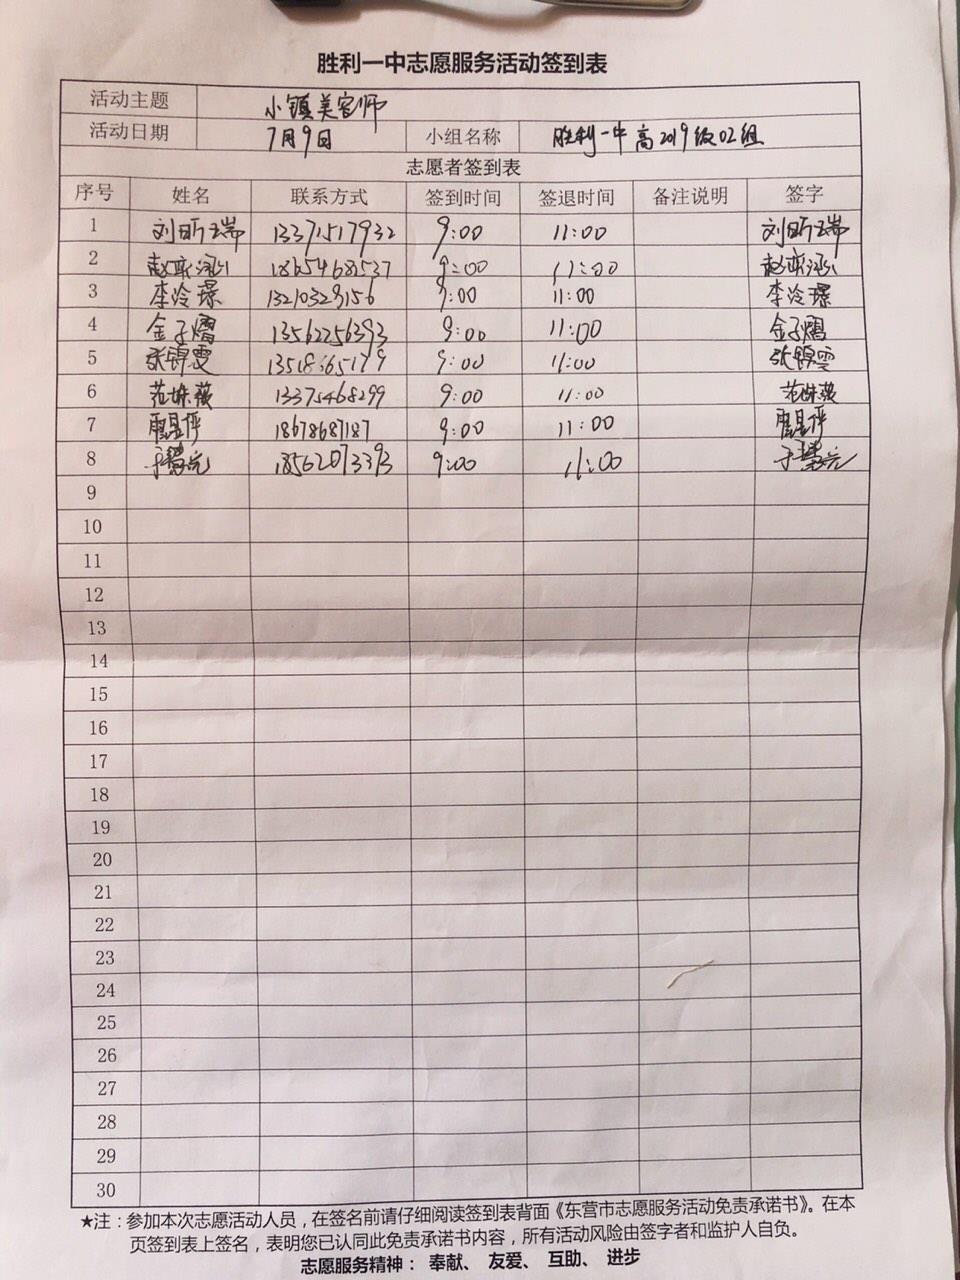 胜利一中志愿服务活动签到表
活动主题 小镇美容师
活动日期 7月9日 小组名称 胜利一中高2019级02组
志愿者签到表
序号 姓名 联系方式 签到时间 签退时间 备注说明 签字
1 刘昕瑞 13371517932 9:00 11:00 刘昕瑞
2 18654681537 9:00 11:00
3 李泠璟 13210329156 9:00 11:00 李泠璟
4 金子熠 13562256393 9:00 11:00 金子熠
5 张锦雯 9:00 11:00 张锦雯
6 范姝薇 13375468299 9:00 11:00 范姝薇
7 18678687187 9:00 11:00
8 于慧元 18562073393 9:00 11:00 于慧元
9
10
11
12
13
14
15
16
17
18
19
20
21
22
23
24
25
26
27
28
29
30
★注：参加本次志愿活动人员，在签名前请仔细阅读签到表背面《东营市志愿服务活动免责承诺书》。在本
页签到表上签名，表明您已认同此免责承诺书内容，所有活动风险由签字者和监护人自负。
志愿服务精神： 奉献、 友爱、 互助、 进步